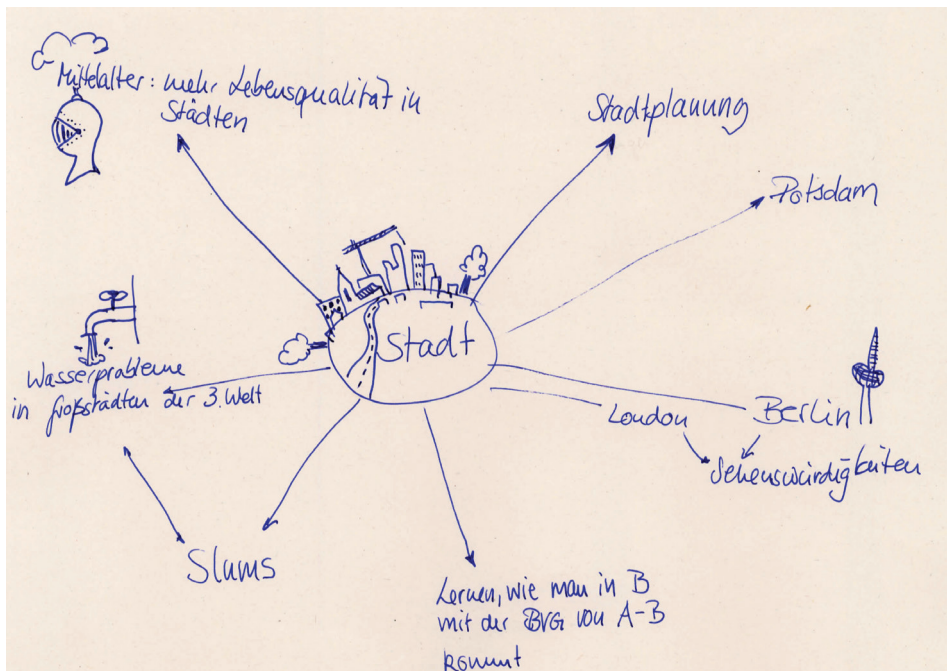 Mittelalter: mehr Lebensqualität in
Städten
Stadtplanung
Potsdam
Stadt
Wasserprobleme
in Großstädten der 3. Welt
London
Berlin
Sehenswürdigkeiten
Slums
Lernen, wie man in B
mit der BVG von A-B
kommt